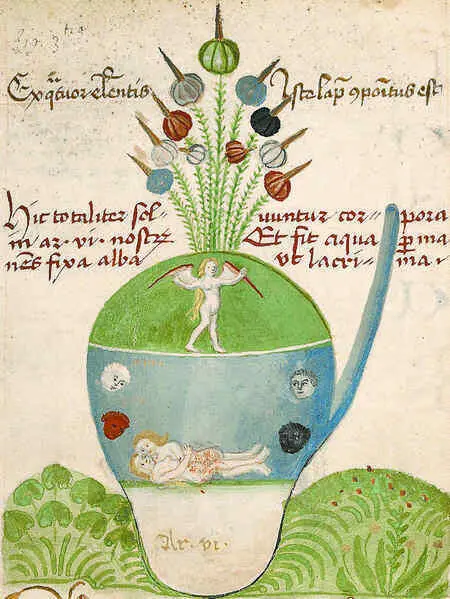 Ex q̄tuor elentis. Iste lap̄ ꝯpoītus est
Hic totaliter sol= vuntur cor= pora
in ar. vi. nostre Et fit aqua ꝑ ma
nēs fixa alba ut lacri= ma.
Ar. vi.